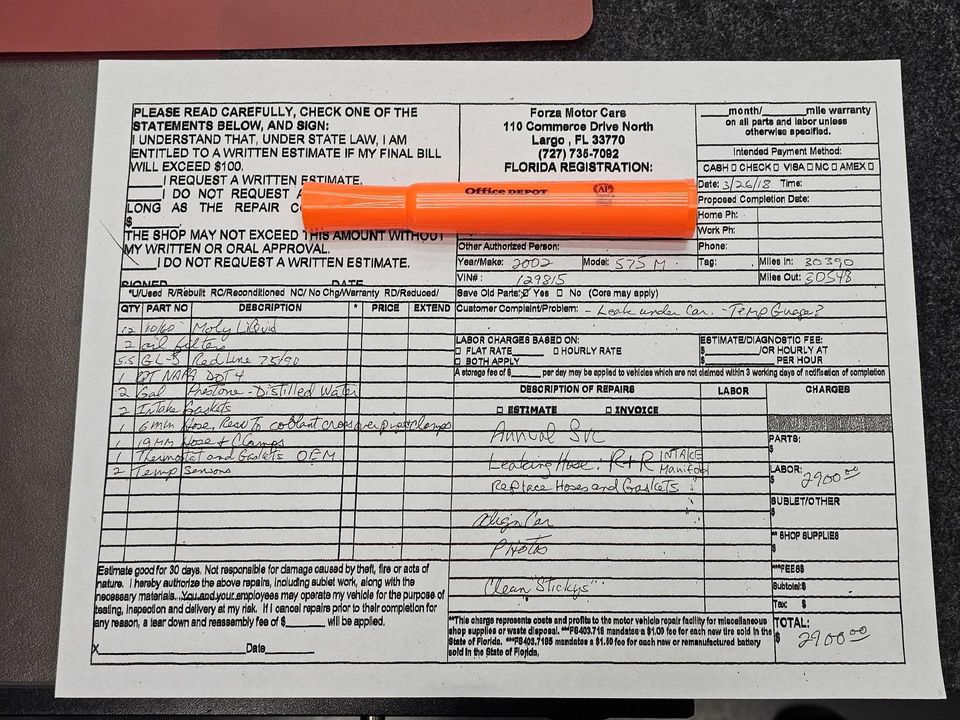 PLEASE READ CAREFULLY, CHECK ONE OF THE
STATEMENTS BELOW, AND SIGN:
I UNDERSTAND THAT, UNDER STATE LAW, I AM
ENTITLED TO A WRITTEN ESTIMATE IF MY FINAL BILL
WILL EXCEED $100.
_____I REQUEST A WRITTEN ESTIMATE.
_____I DO NOT REQUEST A
LONG AS THE REPAIR
$
THE SHOP MAY NOT EXCEED THIS AMOUNT WITHOUT
MY WRITTEN OR ORAL APPROVAL.
_____I DO NOT REQUEST A WRITTEN ESTIMATE.
SIGNED DATE
Forza Motor Cars
110 Commerce Drive North
Largo , FL 33770
(727) 735-7092
FLORIDA REGISTRATION:
Office DEPOT
AP
Other Authorized Person:
Year/Make: 2002 Model: 575 M
VIN#: 129815
Save Old Parts: Yes No (Core may apply)
_____month/_____mile warranty
on all parts and labor unless
otherwise specified.
Intended Payment Method:
CASH CHECK VISA MC AMEX
Date: 3/26/18 Time:
Proposed Completion Date:
Home Ph:
Work Ph:
Phone:
Tag: Miles In: 30390
Miles Out: 30548
*U/Used R/Rebuilt RC/Reconditioned NC/ No Chg/Warranty RD/Reduced/
QTY PART NO DESCRIPTION * PRICE EXTEND
12 10/60 Moly Liquid
2 oil filters
5.5 GL-5 Redline 75/90
1 QT NAPA DOT 4
2 Gal Prestone - Distilled Water
2 Intake Gaskets
1 6mm Hose, Resv To coolant crossover pipe + clamps
1 19MM Hose + Clamps
1 Thermostat and Gaskets OEM
2 Temp Sensors
Customer Complaint/Problem: - Leak under Car. - Temp Guage?
LABOR CHARGES BASED ON:
FLAT RATE______ HOURLY RATE
BOTH APPLY
ESTIMATE/DIAGNOSTIC FEE:
$________/OR HOURLY AT
$________ PER HOUR
A storage fee of $______ per day may be applied to vehicles which are not claimed within 3 working days of notification of completion
DESCRIPTION OF REPAIRS LABOR CHARGES
ESTIMATE INVOICE
Annual Svc
Leaking Hose: R+R INTAKE Manifold
Replace Hoses and Gaskets
Align Car
Photos
Clean "Stickys"
PARTS:
$
LABOR:
$ 2900.00
SUBLET/OTHER
$
** SHOP SUPPLIES
$
***FEES
Subtotal:$
Tax: $
TOTAL:
$ 2900.00
Estimate good for 30 days. Not responsible for damage caused by theft, fire or acts of
nature. I hereby authorize the above repairs, including sublet work, along with the
necessary materials. You and your employees may operate my vehicle for the purpose of
testing, inspection and delivery at my risk. If I cancel repairs prior to their completion for
any reason, a tear down and reassembly fee of $________ will be applied.
X Date
**This charge represents costs and profits to the motor vehicle repair facility for miscellaneous
shop supplies or waste disposal. ***FS403.718 mandates a $1.00 fee for each new tire sold in the
State of Florida. ***FS403.7185 mandates a $1.50 fee for each new or remanufactured battery
sold in the State of Florida.